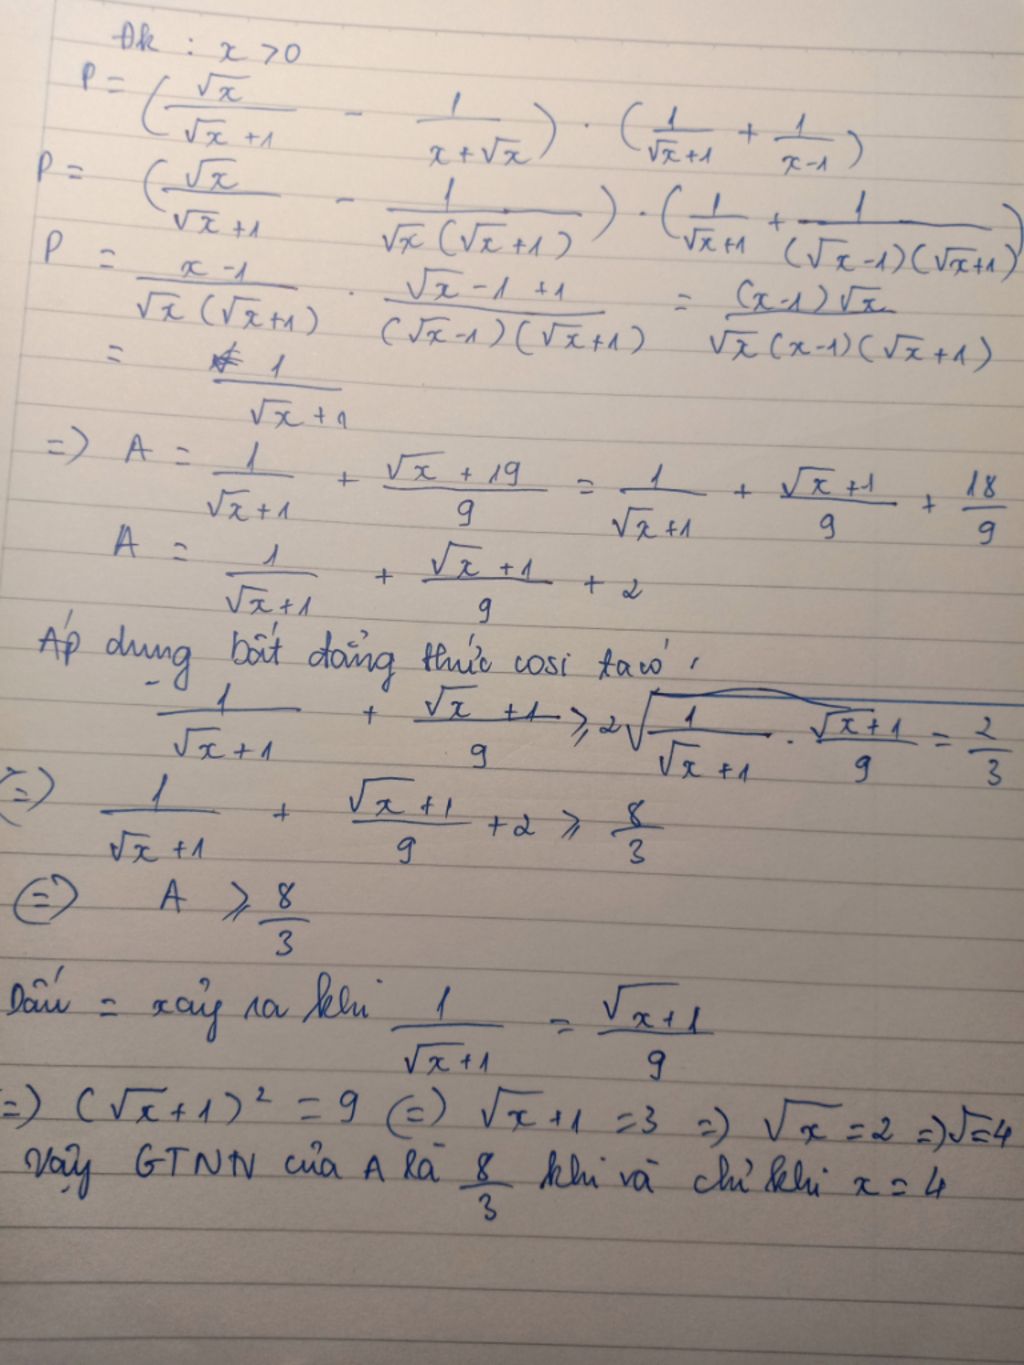 Đk : x > 0
P = (√x / (√x + 1) - 1 / (x + √x)) · (1 / (√x + 1) + 1 / (x - 1))
P = (√x / (√x + 1) - 1 / (√x (√x + 1))) · (1 / (√x + 1) + 1 / ((√x - 1)(√x + 1)))
P = (x - 1) / (√x (√x + 1)) · (√x - 1 + 1) / ((√x - 1)(√x + 1)) = ((x - 1)√x) / (√x (x - 1)(√x + 1))
= 1 / (√x + 1)
=> A = 1 / (√x + 1) + (√x + 19) / 9 = 1 / (√x + 1) + (√x + 1) / 9 + 18 / 9
A = 1 / (√x + 1) + (√x + 1) / 9 + 2
Áp dụng bất đảng thức cosi ta có,
1 / (√x + 1) + (√x + 1) / 9 ⩾ 2√(1 / (√x + 1) · (√x + 1) / 9) = 2 / 3
(=) 1 / (√x + 1) + (√x + 1) / 9 + 2 ⩾ 8 / 3
(=) A ⩾ 8 / 3
Dấu = xảy ra khi 1 / (√x + 1) = (√x + 1) / 9
=) (√x + 1)² = 9 (=) √x + 1 = 3 =) √x = 2 =) √ = 4
Vậy GTNN của A là 8 / 3 khi và chỉ khi x = 4